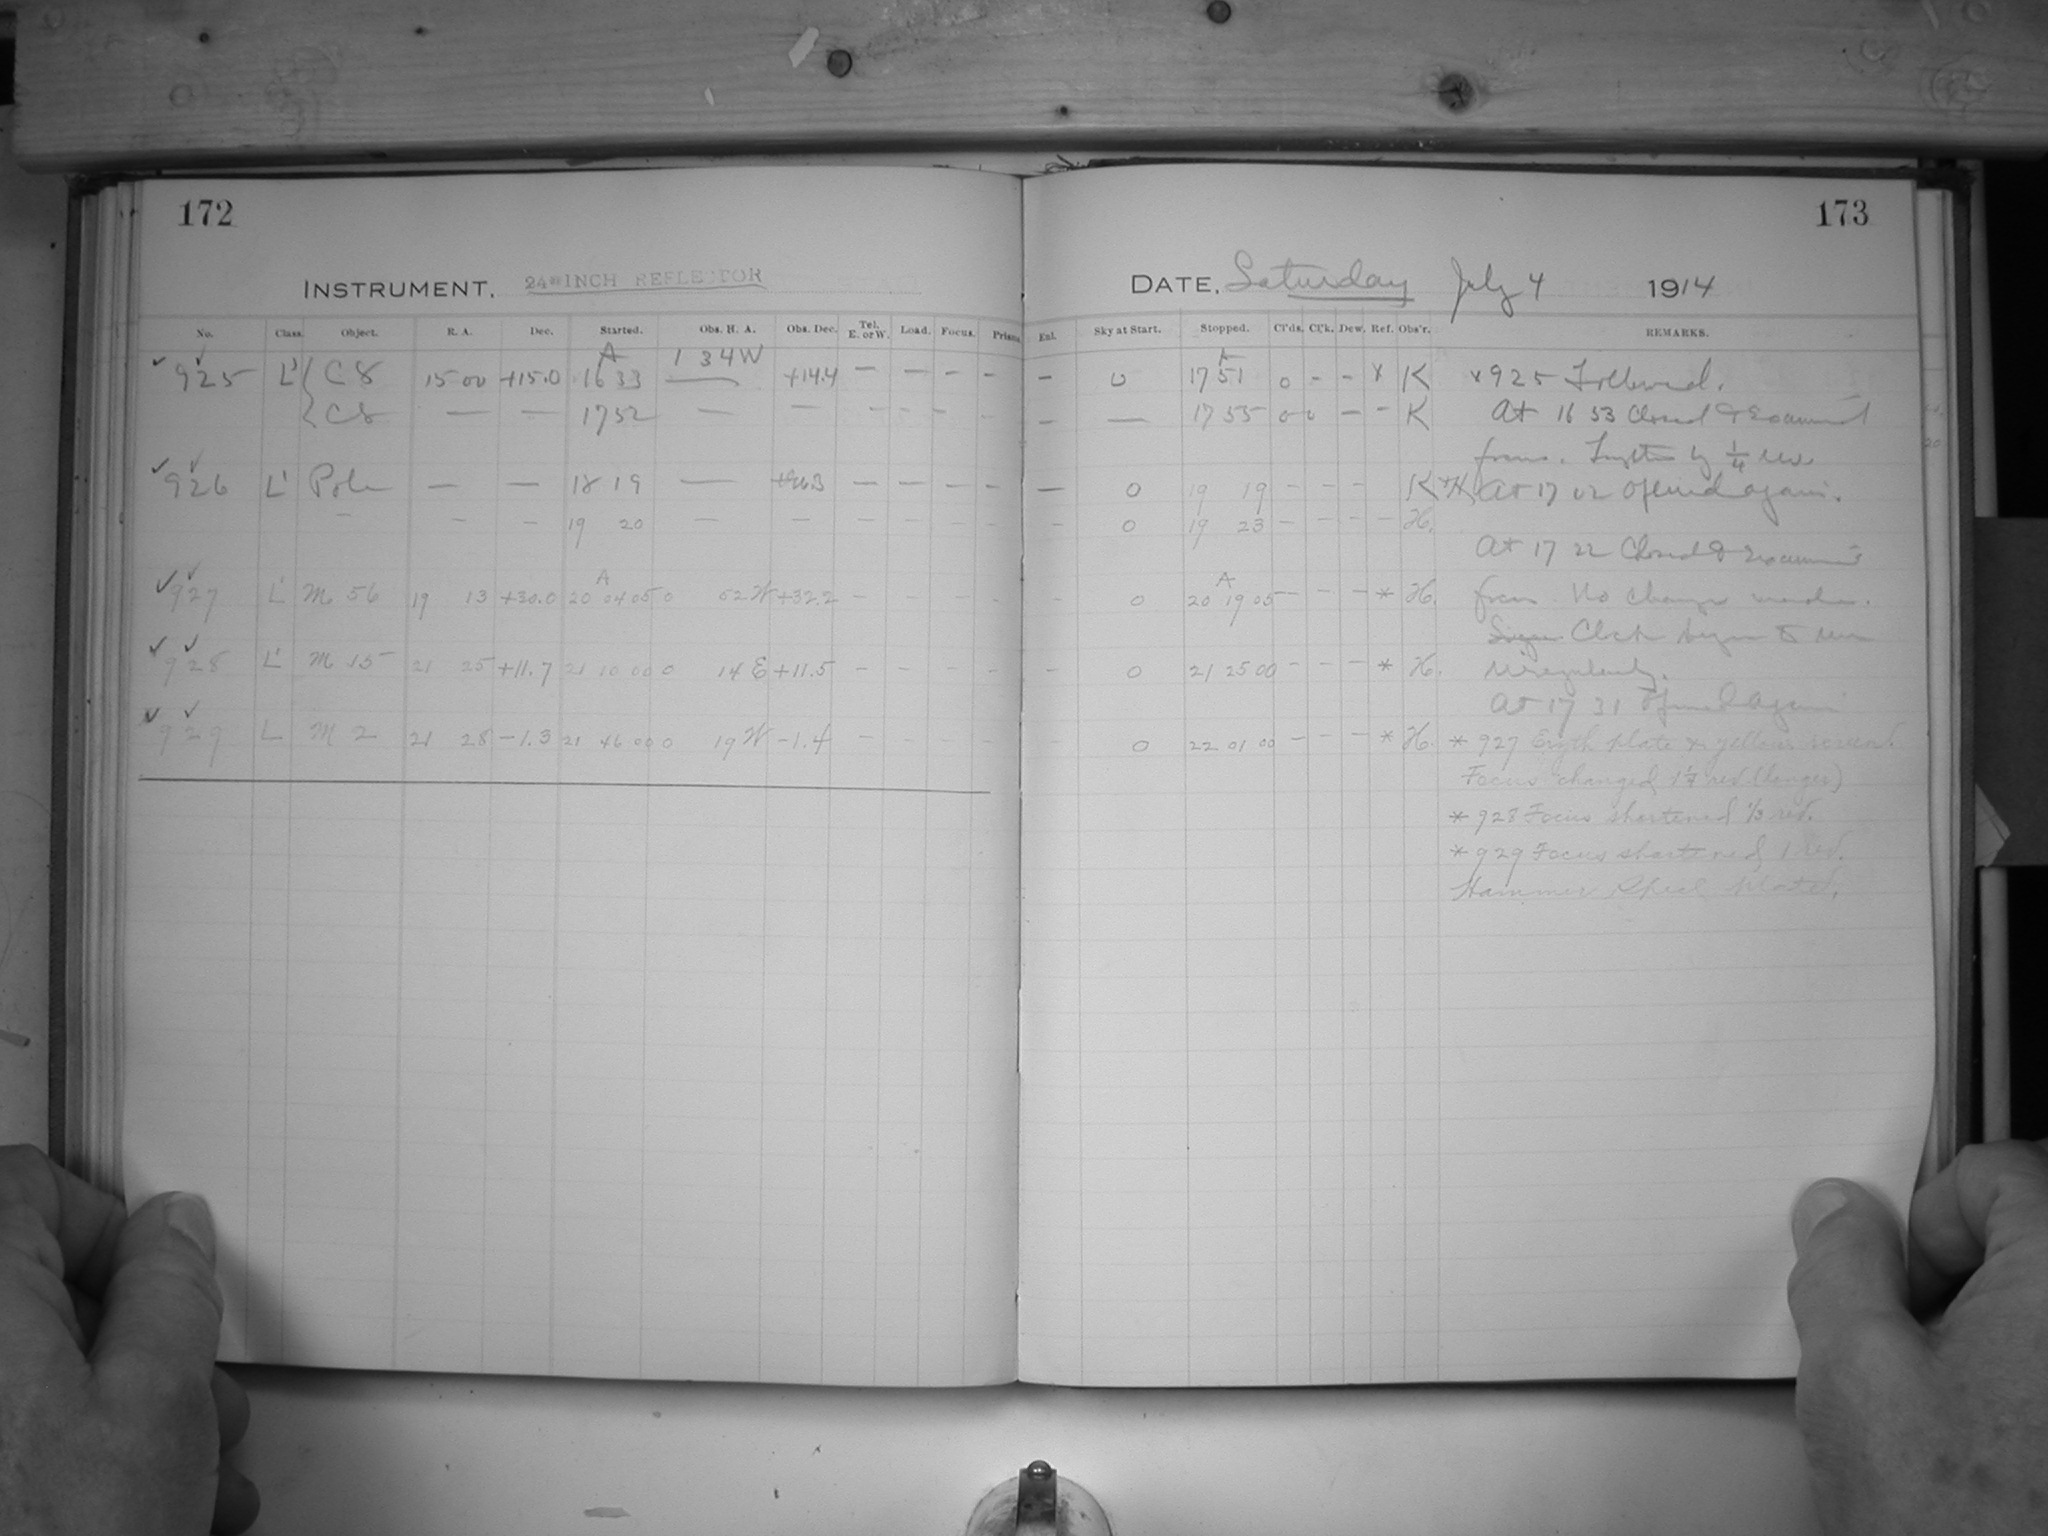 172
INSTRUMENT. 24-INCH REFLECTOR
No. Class. Object. R. A. Dec. Started. Obs. H. A. Obs. Dec. Tel. E. or W. Load. Focus. Prisms.
A 1 34 W
925 L' C8 15 00 +15.0 16 33 — +14.4 — — — —
C8 — — 17 52 — — - - - -
926 L' Pole — — 18 19 — — — - -
— - — 19 20 — — - - - -
A
927 L' M 56 19 13 +30.0 20 04 05 0 02 W +32.2 - - - -
928 L' M 15 21 25 +11.7 21 10 00 0 14 E +11.5 - - - -
929 L M 2 21 28 -1.3 21 46 00 0 19 W -1.4 - - - -
173
DATE. Saturday July 4 1914
Enl. Sky at Start. Stopped. Cl'ds. Cl'k. Dew. Ref. Obs'r. REMARKS.
A
— 0 17 51 0 - - * K * 925 Followed.
— — 17 55 0 0 — - K At 16 53 Closed & Examined
focus. by 1/4 rev.
— 0 19 19 - - - K + H At 17 02 Opened again.
- 0 19 23 - - - - H.
At 17 22 Closed & Examined
A
- 0 20 19 05 - - - * H. focus No change made.
Clock began to run
- 0 21 25 00 - - - * H. irregularly.
At 17 31 Opened again
0 22 01 00 - - - * H. * 927 Eryth plate & yellow screen.
Focus changed rev. (longer)
* 928 Focus shortened 1/3 rev.
* 929 Focus shortened 1 rev.
Hammer Spcl plate.